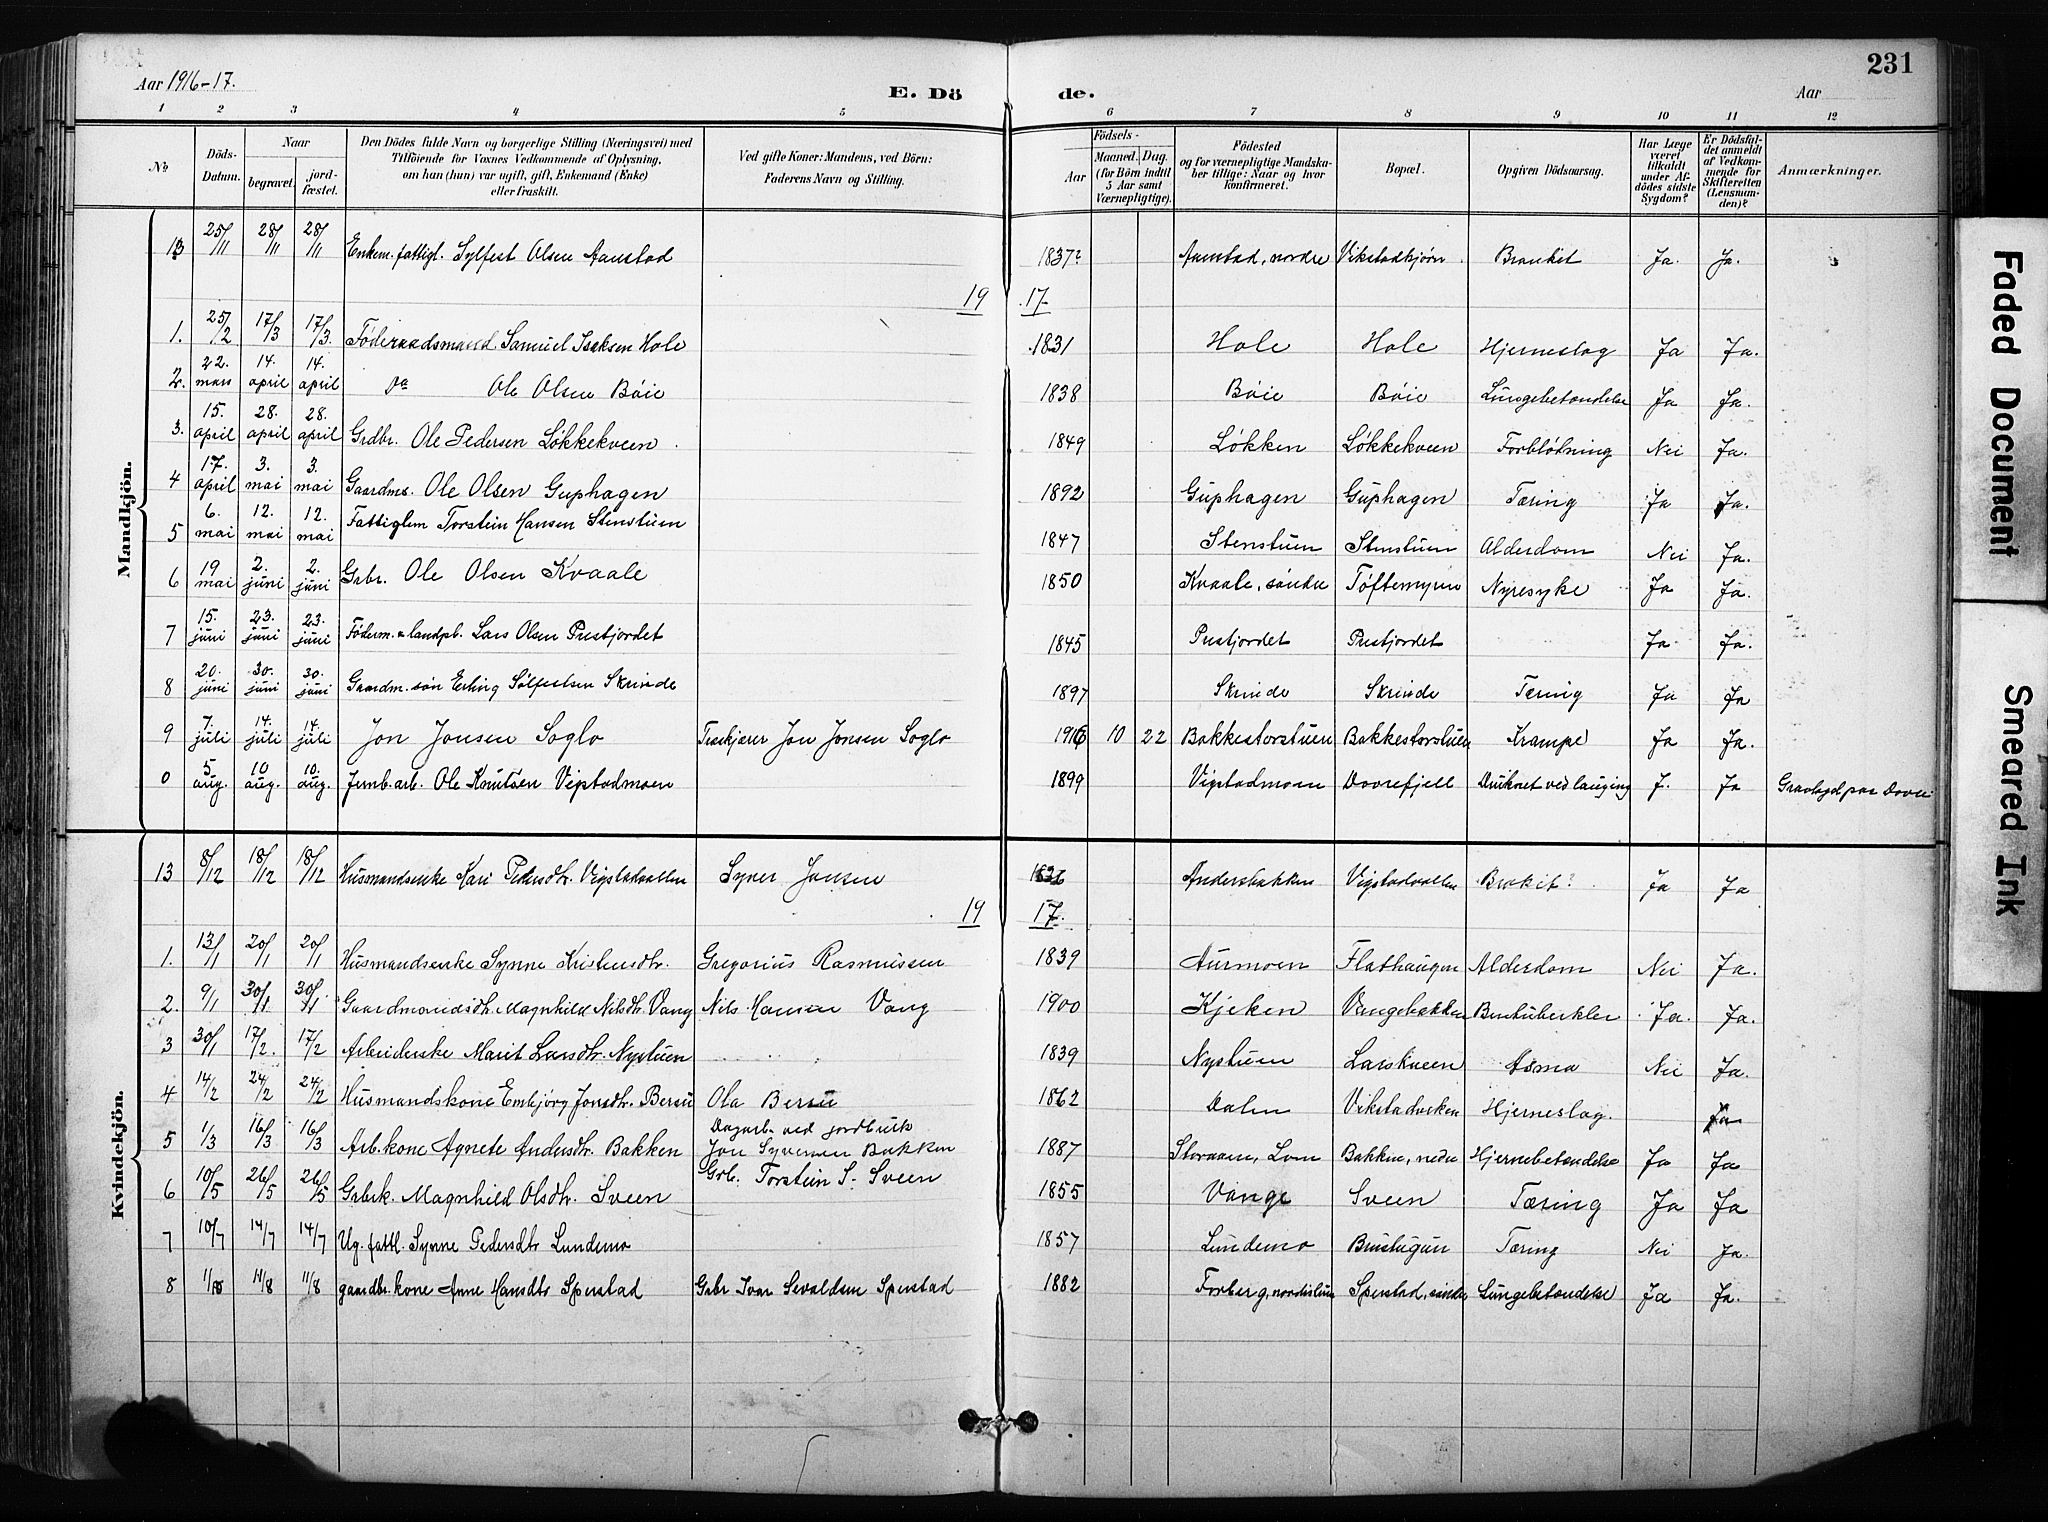 231
Aar 1916-17.
E. Dö de.
Aar
1 2 3 4 5 6 7 8 9 10 11 12
No
Döds-Datum.
Naar
begravet.
jord-fæstet.
Den Dödes fulde Navn og borgerlige Stilling (Næringsvei) med
Tilföiende for Voxnes Vedkommende af Oplysning,
om han (hun) var ugift, gift, Enkemand (Enke)
eller fraskilt.
Ved gifte Koner: Mandens, ved Börn:
Faderens Navn og Stilling.
Födsels-
Aar
Maaned. Dag.
(for Börn indtil
5 Aar samt
Værnepligtige).
Födested
og for værnepligtige Mandska-
ber tillige: Naar og hvor
konfirmeret.
Bopæl.
Opgiven Dödsaarsag.
Har Læge
været
tilkaldt
under Af-
dödes sidste
Sygdom?
Er Dödsfal-
det anmeldt
af Vedkom-
mende for
Skifteretten
(Lensman-
den)?
Anmærkninger.
Mandkjön.
13 25/11 28/11 28/11 Enkem. fattigl. Sylfest Olsen Aanstad 1837? Aanstad, nordre Vikstadkjørn Bronkit Ja. Ja.
19 17.
1. 25/2 17/3 17/3. Føderaadsmand Samuel Isaksen Hole 1831 Hole Hole Hjerneslag Ja Ja.
2. 22. mars 14. april 14. april Do Ole Olsen Bøie 1838 Bøie Bøie Lungebetændelse Ja Ja.
3. 15. april 28. april 28. april Grdbr. Ole Pedersen Løkkekveen 1849 Løkken Løkkekveen Forblødning Nei Ja.
4 17. april 3. mai 3. mai Gaardms. Ole Olsen Guphagen 1892 Guphagen Guphagen Tæring Ja Ja.
5 6. mai 12. mai 12. mai Fattiglem Torstein Hansen Stenstuen 1847 Stenstuen Stenstuen Alderdom Nei Ja.
6 19 mai 2. juni 2. juni Grbr. Ole Olsen Kvaale 1850 Kvaale, søndre Tøftemyren Nyresyke Ja Ja.
7 15. juni 23. juni 23. juni Føderm. & landpb. Lars Olsen Prestjordet 1845 Prestjordet Prestjordet Ja. Ja.
8 20. juni 30. juni 30. juni Gaardm. søn Erling Sølfestsen Skrinde 1897 Skrinde Skrinde Tæring Ja Ja
9 7. juli 14. juli 14. juli Jon Jonsen Soglo Træskjærer Jon Jonsen Soglo 1916 10 22 Bakkestorstuen Bakkestorstuen Krampe Ja Ja.
0 5 aug. 10 aug. 10. aug. Jernb. arb. Ole Knutsen Vigstadmoen 1899 Vigstadmoen Dovrefjell Druknet ved lauging J. Ja Gravlagd paa Dovre
Kvindekjön.
13 8/12 18/12 18/12 Husmandsenke Kari Pedersdtr. Vigstadvallen Syver Jonsen Andersbakken Vigstadvallen Brokit? Ja Ja
19 17.
1. 13/1 20/1 20/1 Husmandsenke Synne Kristensdtr. Gregorius Rasmussen 1839 Aurmoen Flathaugen Alderdom Nei Ja.
2. 9/1 30/1 30/1 Gaardmandsdtr. Magnhild Nilsdtr. Vang Nils Hansen Vang 1900 Kjeken Vangsbakken Bentuberkler Ja. Ja.
3 30/1 17/2. 17/2 Arbeiderske Marit Larsdtr. Nystuen 1839 Nystuen Larskveen Asma Nei Ja.
4 14/2 24/2 24/2 Husmandskone Embjørg Jonsdtr. Bersu Ola Bersu 1862 Dalen Vikstadveken Hjerneslag. Ja
5 1/3 16/3 16/3 Arb.kone Agnete Andersdtr. Bakken Dagarb. ved jordbruk Jon Syversen Bakken 1887 Storaaen, Lom Bakken, nedre Hjernebetændelse Ja Ja
6 10/5 26/5 26/5 Grbrk. Magnhild Olsdtr. Sveen Grb. Torstein S. Sveen 1855 Vange Sveen Tæring Ja Ja
7 10/7 14/7 14/7 Ug. fattl. Synne Pedersdtr Lundemo 1857 Lundemo Brustugun Tæring Nei Ja.
8 11/8 11/8 gaardbr. kone Anne Hansdtr Sperstad Grbr Ivar Sevaldsen Sperstad 1882 Forberg, nordistuen Sperstad, søndre Lungebetændelse Ja Ja.
Faded Document
Smeared Ink